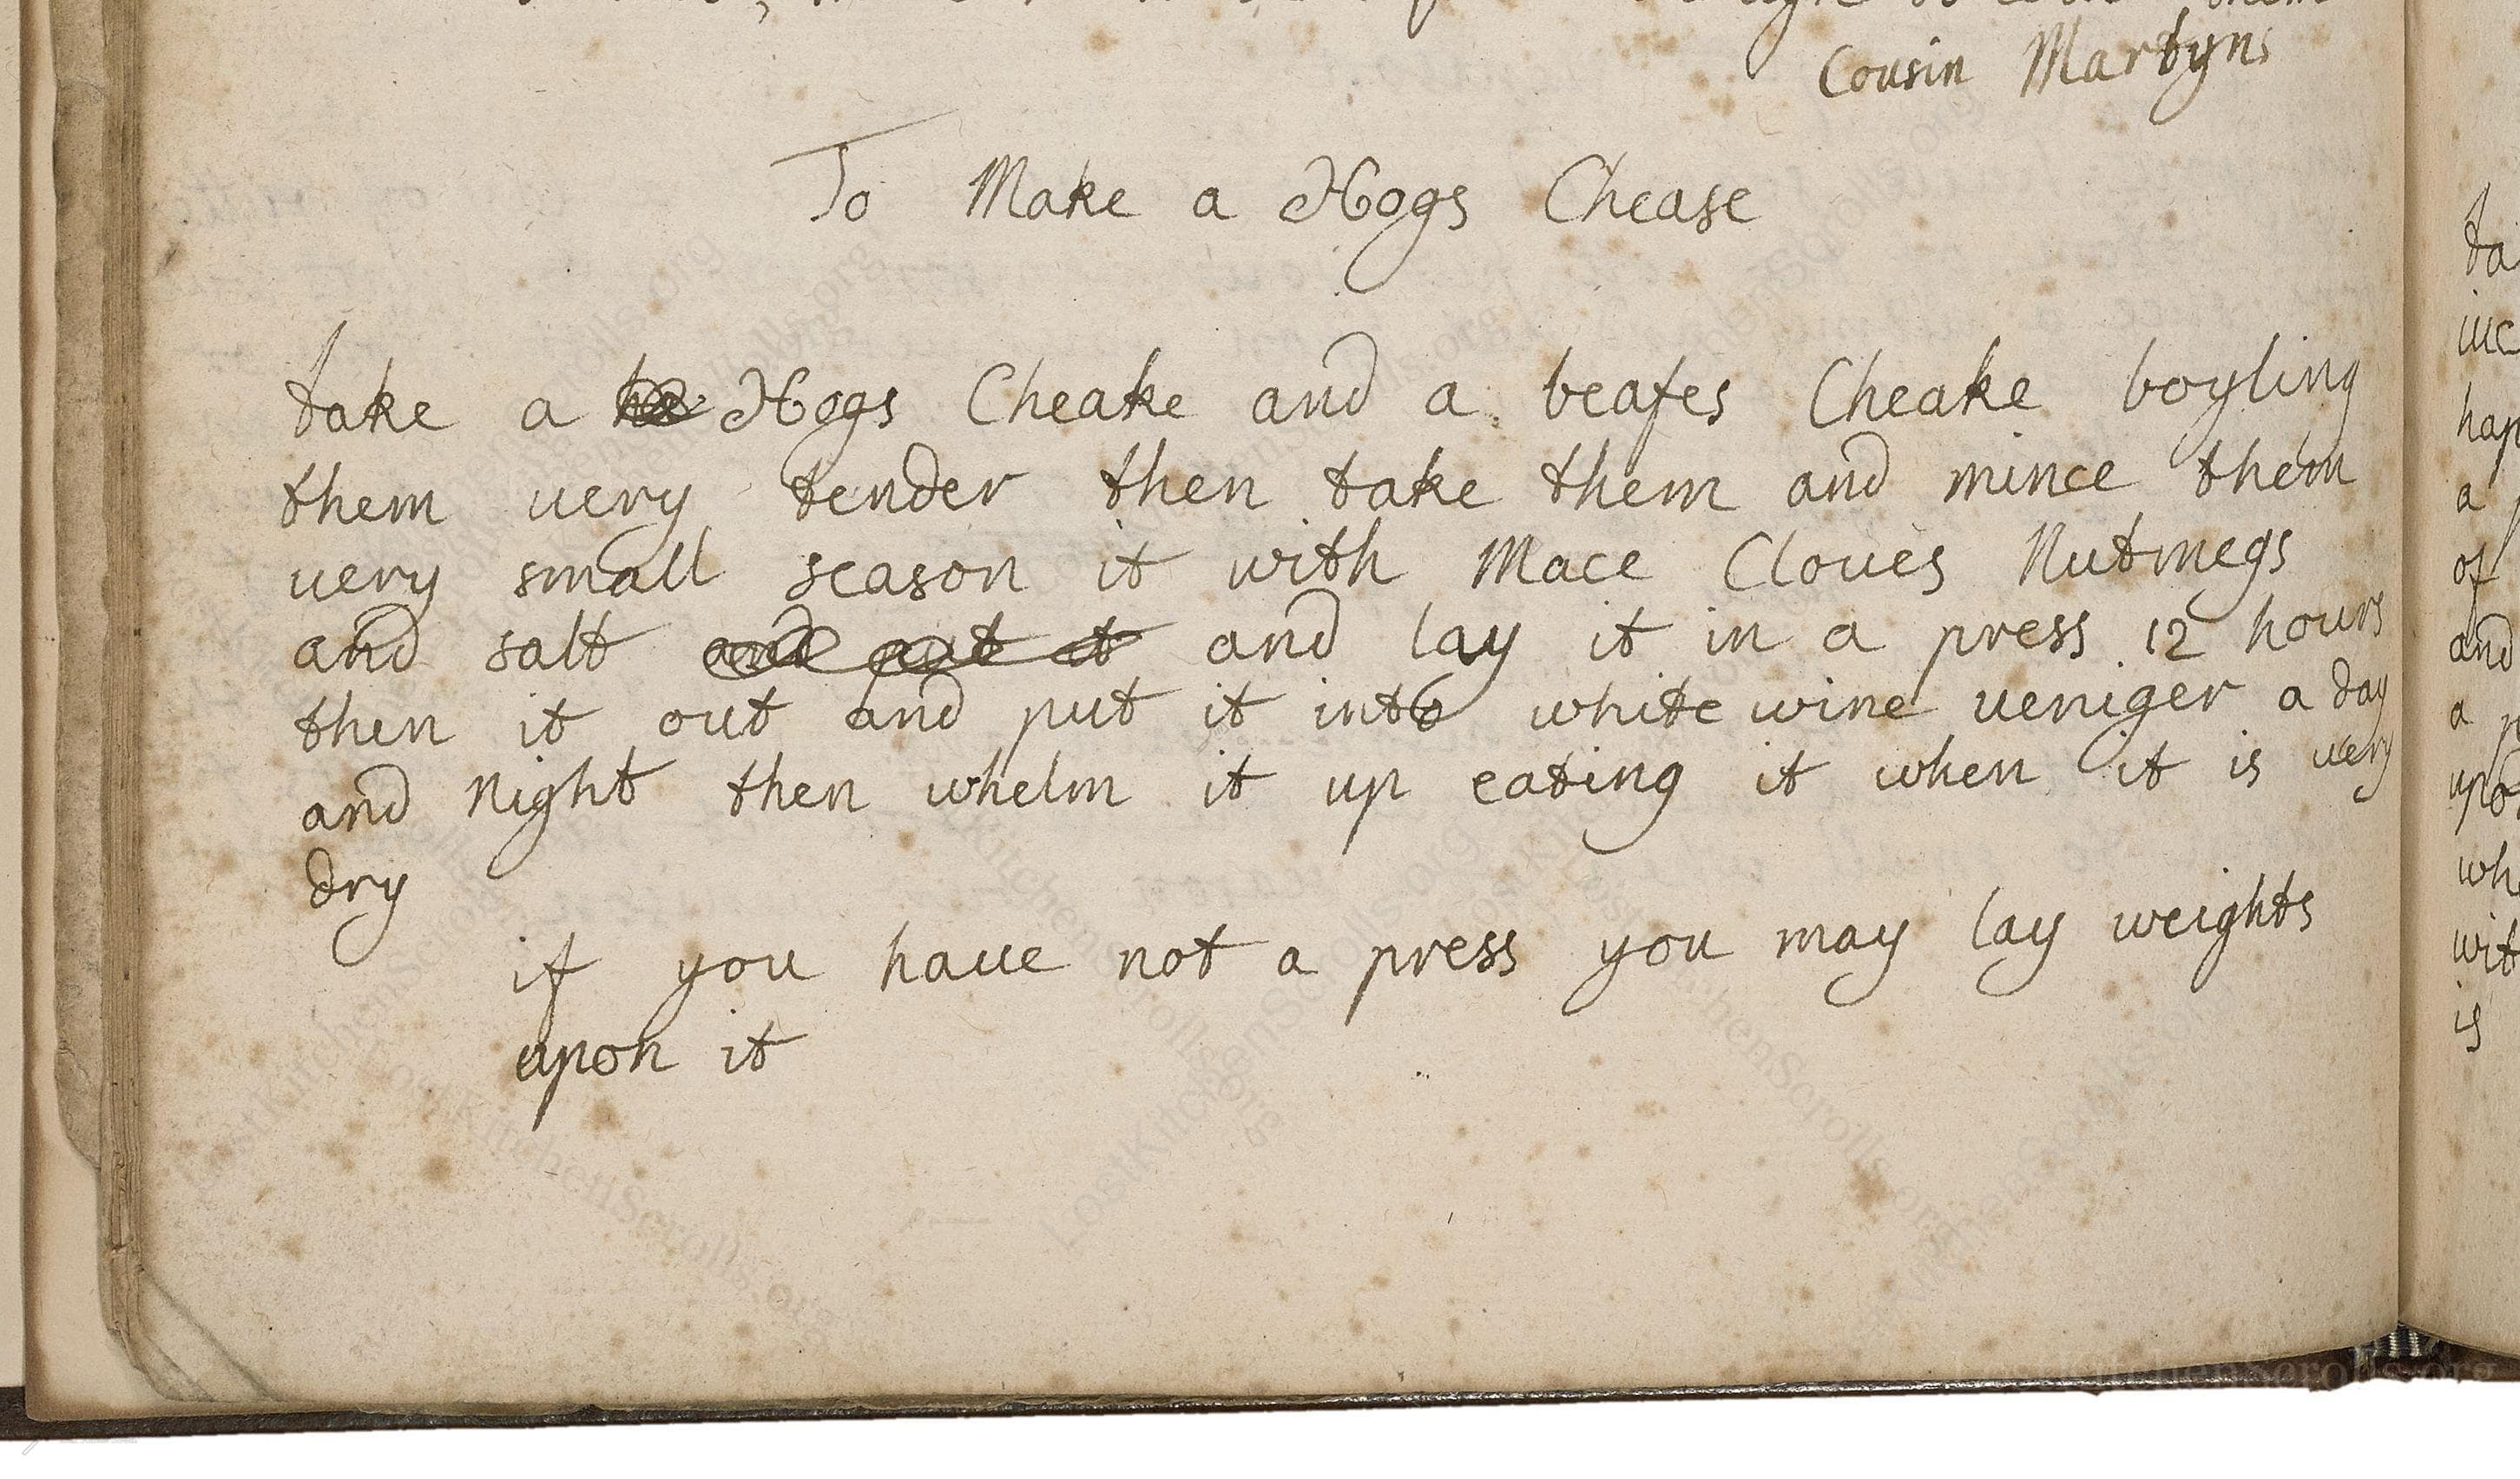 Cousin Martyns
To Make a Hogs Chease
take a Hogs Cheake and a beafes Cheake boyling
them uery tender then take them and mince them
uery small season it with Mace Cloues Nutmegs
and salt and put it and lay it in a press 12 hours
then it out and put it into white wine ueniger a day
and night then whelm it up eating it when it is uery
dry
if you haue not a press you may lay weights
upon it